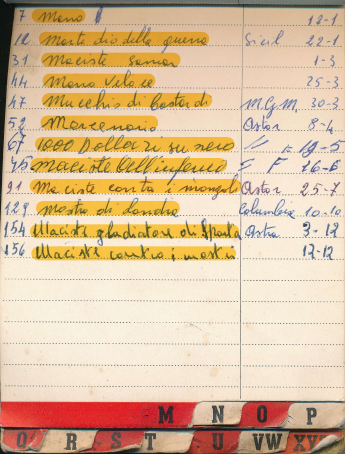 7 Mano 12-1
12 Marte dio della guerra Sicil 22-1
31 Maciste 1-3
44 Mano veloce 25-3
47 Mucchio di bastardi M.G.M. 30-3
52 Mercenario Astor 8-4
67 1000 Dollari su nero 19-5
75 Maciste all'inferno F 16-6
91 Maciste contro i mongoli Astor 25-7
129 Mostro di Londra Columbia 10-10
154 Maciste gladiatore di Sparta Astra 3-12
156 Maciste contro i mostri 12-12
M N O P
Q R S T U VW XY